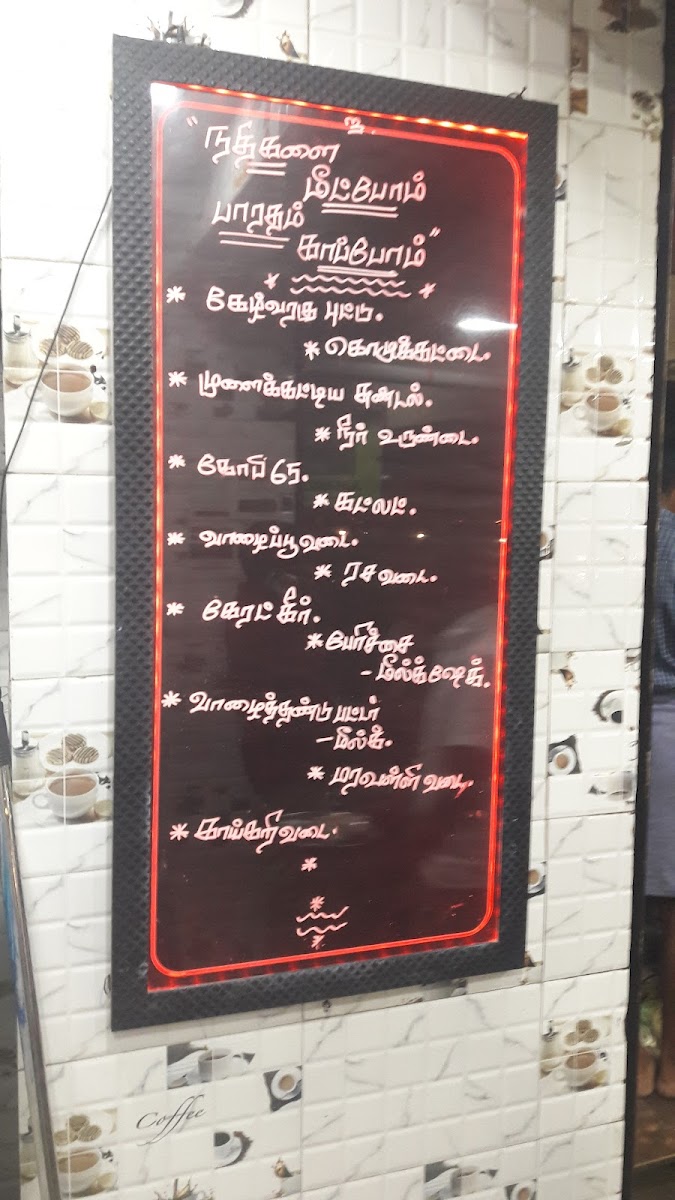 உ
"நதிகளை
மீட்போம்
பாரதம்
காப்போம்"
* கேழ்வரகு புட்டு.
* கொழுக்கட்டை.
* முளைக்கட்டிய சுண்டல்.
* நீர் உருண்டை.
* கோபி 65.
* கட்லட்.
* வாழைப்பூ வடை.
* ரச வடை.
* கேரட் கீர்.
* பேரிச்சை
- மில்க் ஷேக்.
* வாழைத்தண்டு பட்டர்
- மில்க்.
* மரவள்ளி வடை.
* காய்கறி வடை.
Coffee